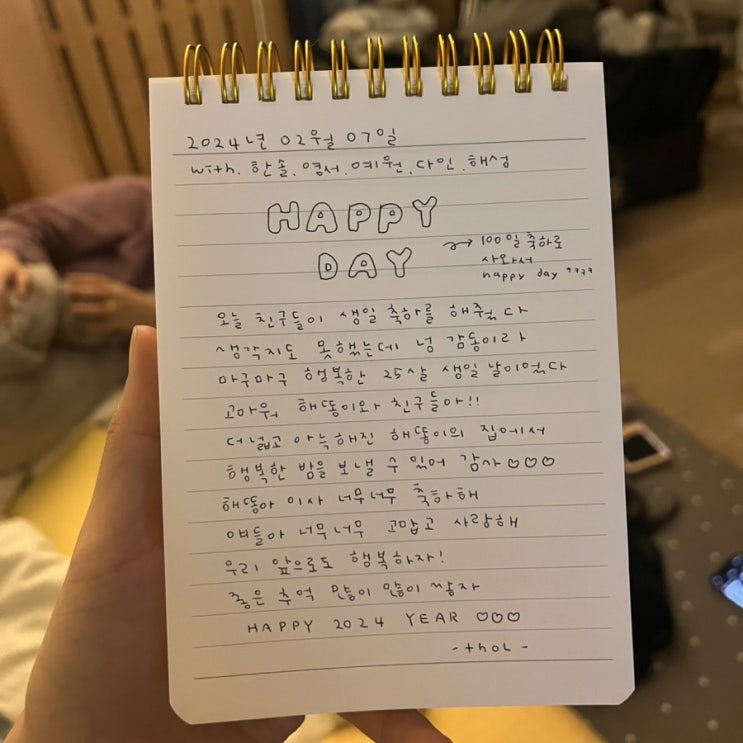 2024년 02월 07일
with. 한솔. 영서. 예원. 다인. 해성
HAPPY
DAY
→ 100일 축하로
사와서
happy day ㅋㅋㅋㅋ
오늘 친구들이 생일 축하를 해줬다
생각지도 못했는데 넝 감동이라
마구마구 행복한 25살 생일 날이었다
고마워 해똥이와 친구들아!!
더 넓고 아늑해진 해똥이의 집에서
행복한 밤을 보낼 수 있어 감사♡♡♡
해똥아 이사 너무너무 축하해
얘들아 너무너무 고맙고 사랑해
우리 앞으로도 행복하자!
좋은 추억 많이 많이 쌓자
HAPPY 2024 YEAR ♡♡♡
- thol -